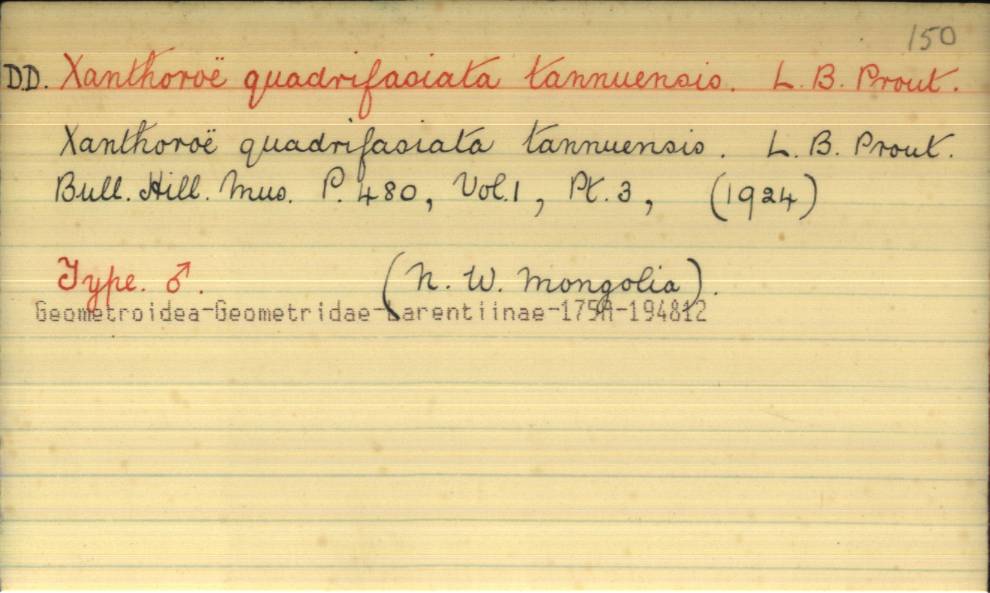 150
DD. Xanthoroë quadrifasiata tannuensis. L. B. Prout.
Xanthoroë quadrifasiata tannuensis. L. B. Prout.
Bull. Hill. Mus. P. 480, Vol.1, Pt. 3, (1924)
Type. ♂. (N. W. Mongolia).
Geometroidea-Geometridae-Larentiinae-175A-194812